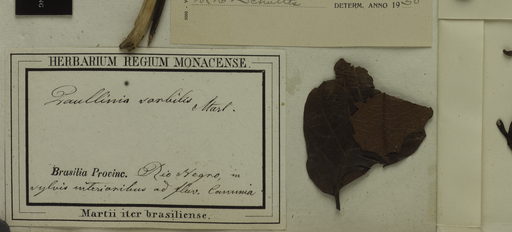 DETERM. ANNO 19
HERBARIUM REGIUM MONACENSE.
Paullinia sorbilis
Mart.
Brasilia Provinc. Rio Negro, in
sylvis interioribus ad fluv.
Martii iter brasiliense.